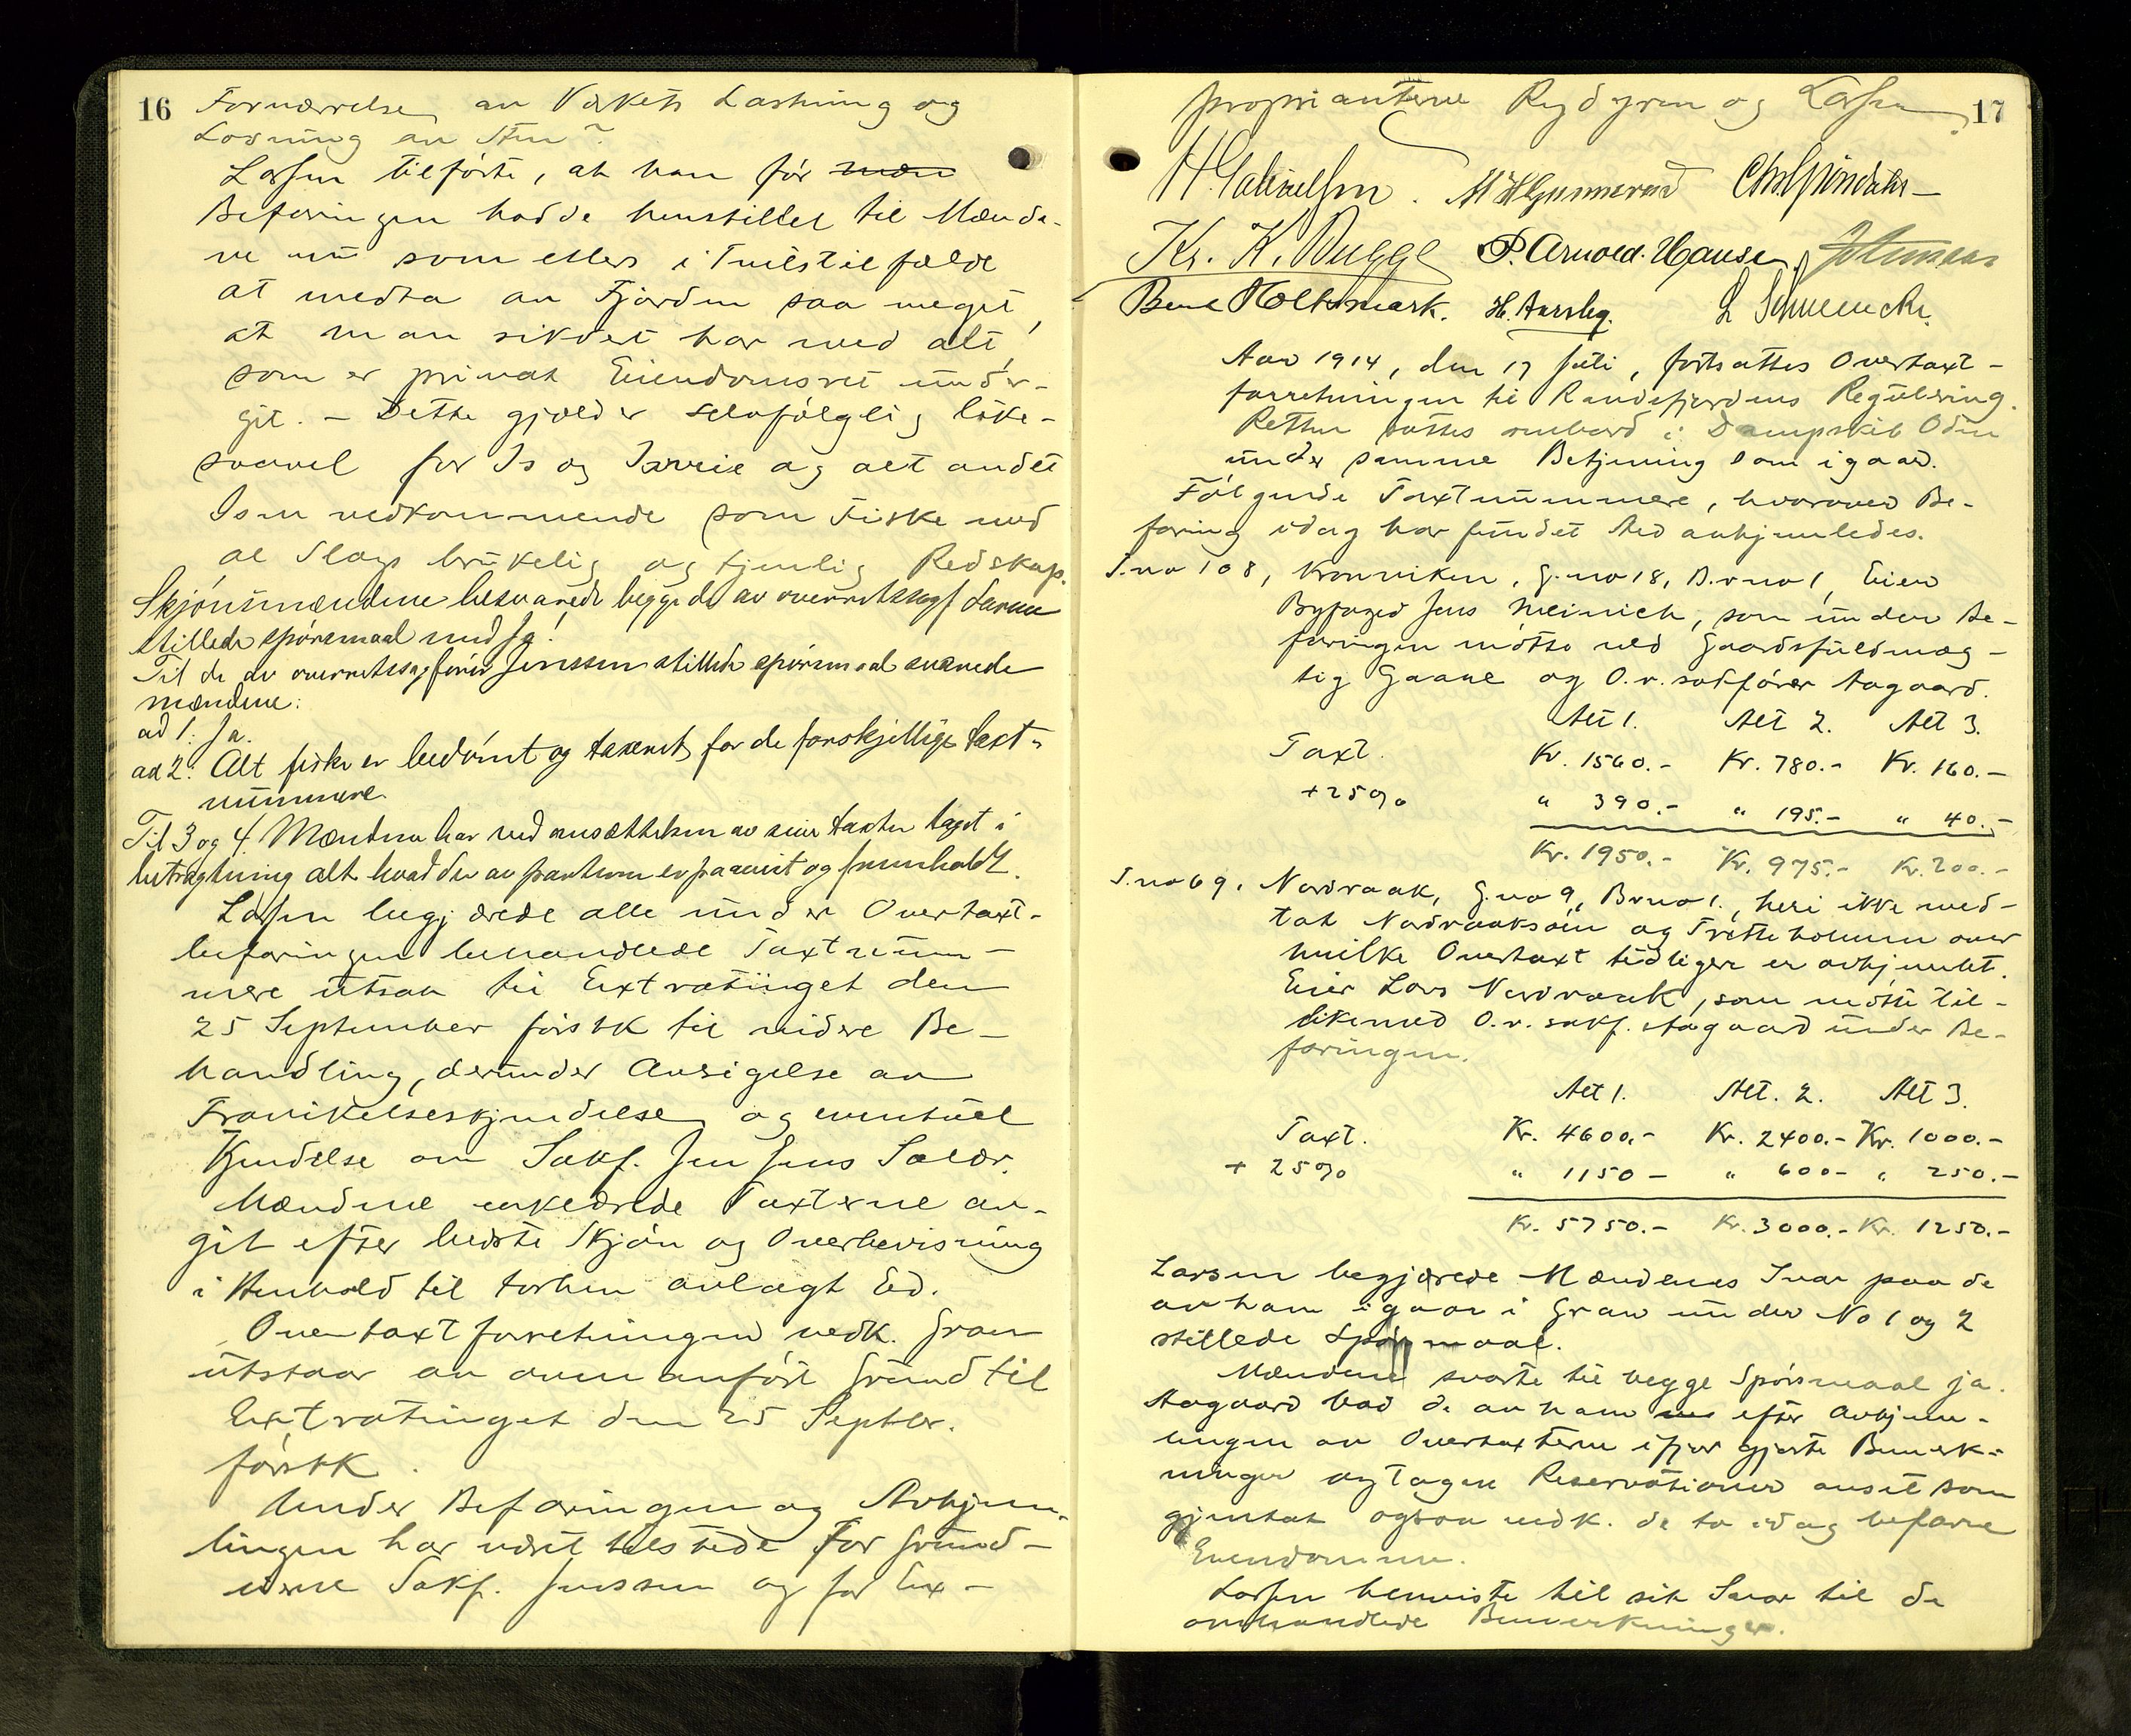 16
Fornærmelse av Værkets Lastning og
Losning av Sten?
Larsen tilførte, at han før mæn
Befaringen hadde henstillet til Mænde-
ne nu som ellers i Tvilstilfælde
at medta av Fjorden saa meget,
at man sikkert har med alt,
som er privat Eiendomsret under-
git. – Dette gjælder selvfølgelig like-
saavel for Is og Isveie og alt andet
Isen vedkommende som Fiske med
al Slags brukelig og tjenlig Redskap.
Skjønsmændene besvarede begge de av overretssagf Larsen
stillede spørsmaal med Ja!
Til de av overretssagfører Jenssen stillede spørsmaal svarede
mændene:
ad 1: Ja.
ad 2: Alt fiske er bedømt og taxeret for de forskjellige taxt-
nummere.
Til 3 og 4. Mændene har ved ansættelsen av sine taxter taget i
betragtning alt hvad der av parterne er paavist og fremholdt.
Larsen begjærede alle under Overtaxt-
befaringen behandlede Taxtnum-
mere utsat til Extratinget den
25 September førstk til videre Be-
handling, derunder Avsigelse av
Fravikelseskjendelse og eventuel
Kjendelse om Sakf. Jenssens Salær.
Mændene erklærede Taxterne av-
git efter bedste Skjøn og Overbevisning
i Henhold til forhen avlagt Ed.
Overtaxtforretningen vedk. Gran
utstaar av ovenanført Grund til
Extratinget den 25 Septbr.
førstk.
Under Befaringen og Avhjem-
lingen har været tilstede for Grund-
eierne Sakf. Jenssen og for Ex-
17
proprianterne Rydgren og Larsen.
H. Gabrielsen. M H Gunnerud Chr Gjøndahl
Kr. K. Bugge P. Arnold. Hansen,
Bent Holtsmark. H. Aarsby. L Schmencke.
Aar 1914, den 17 Juli, fortsattes Overtaxt-
forretningen til Randsfjordens Regulering.
Retten sattes ombord i Dampskib Odin
under samme Betjening som igaar.
Følgende Taxtnummere, hvorover Be-
faring idag har fundet Sted avhjemledes.
T.no 108, Kronviken, G.no 18, B.rno 1, Eier
Byfoged Jens Meinich, som under Be-
faringen møtte ved Gaardsfuldmæg-
tig Gaane og O.r.sakfører Aagaard.
Alt 1. Alt 2. Alt 3.
Taxt. Kr. 1560.- Kr. 780.- Kr. 160.-
+25% " 390.- " 195.- " 40.-
Kr. 1950.- Kr. 975.- Kr. 200.-
T.no 69. Nordraak, G.no 9, Brno 1, heri ikke med-
tat Nordraaksøen og Tretteholmen over
hvilke Overtaxt tidligere er avhjemlet.
Eier Lars Nordraak, som møtte til-
likemed O.r.sakf. Aagaard under Be-
faringen.
Alt 1. Alt. 2. Alt 3.
Taxt. Kr. 4600.- Kr. 2400.- Kr. 1000.-
+ 25% " 1150 - " 600- " 250.-
Kr. 5750.- Kr. 3000.- Kr. 1250.-
Larsen begjærede Mændenes Svar paa de
av ham igaar i Gran under No 1 og 2
stillede Spørsmaal.
Mændene svarte til begge Spørsmaal ja.
Aagaard bad de av ham efter Avhjem-
lingen av Overtaxterne ifjor gjorte Bemerk-
ninger og tagne Reservationer anset som
gjentat ogsaa vedk. de to idag befarne
Eiendomme.
Larsen henviste til sit Svar til de
omhandlede Bemerkninger.